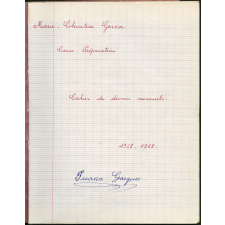 Marie-Christine Garcia
Cours Préparatoire
Cahier de devoirs mensuels.
1967-1968